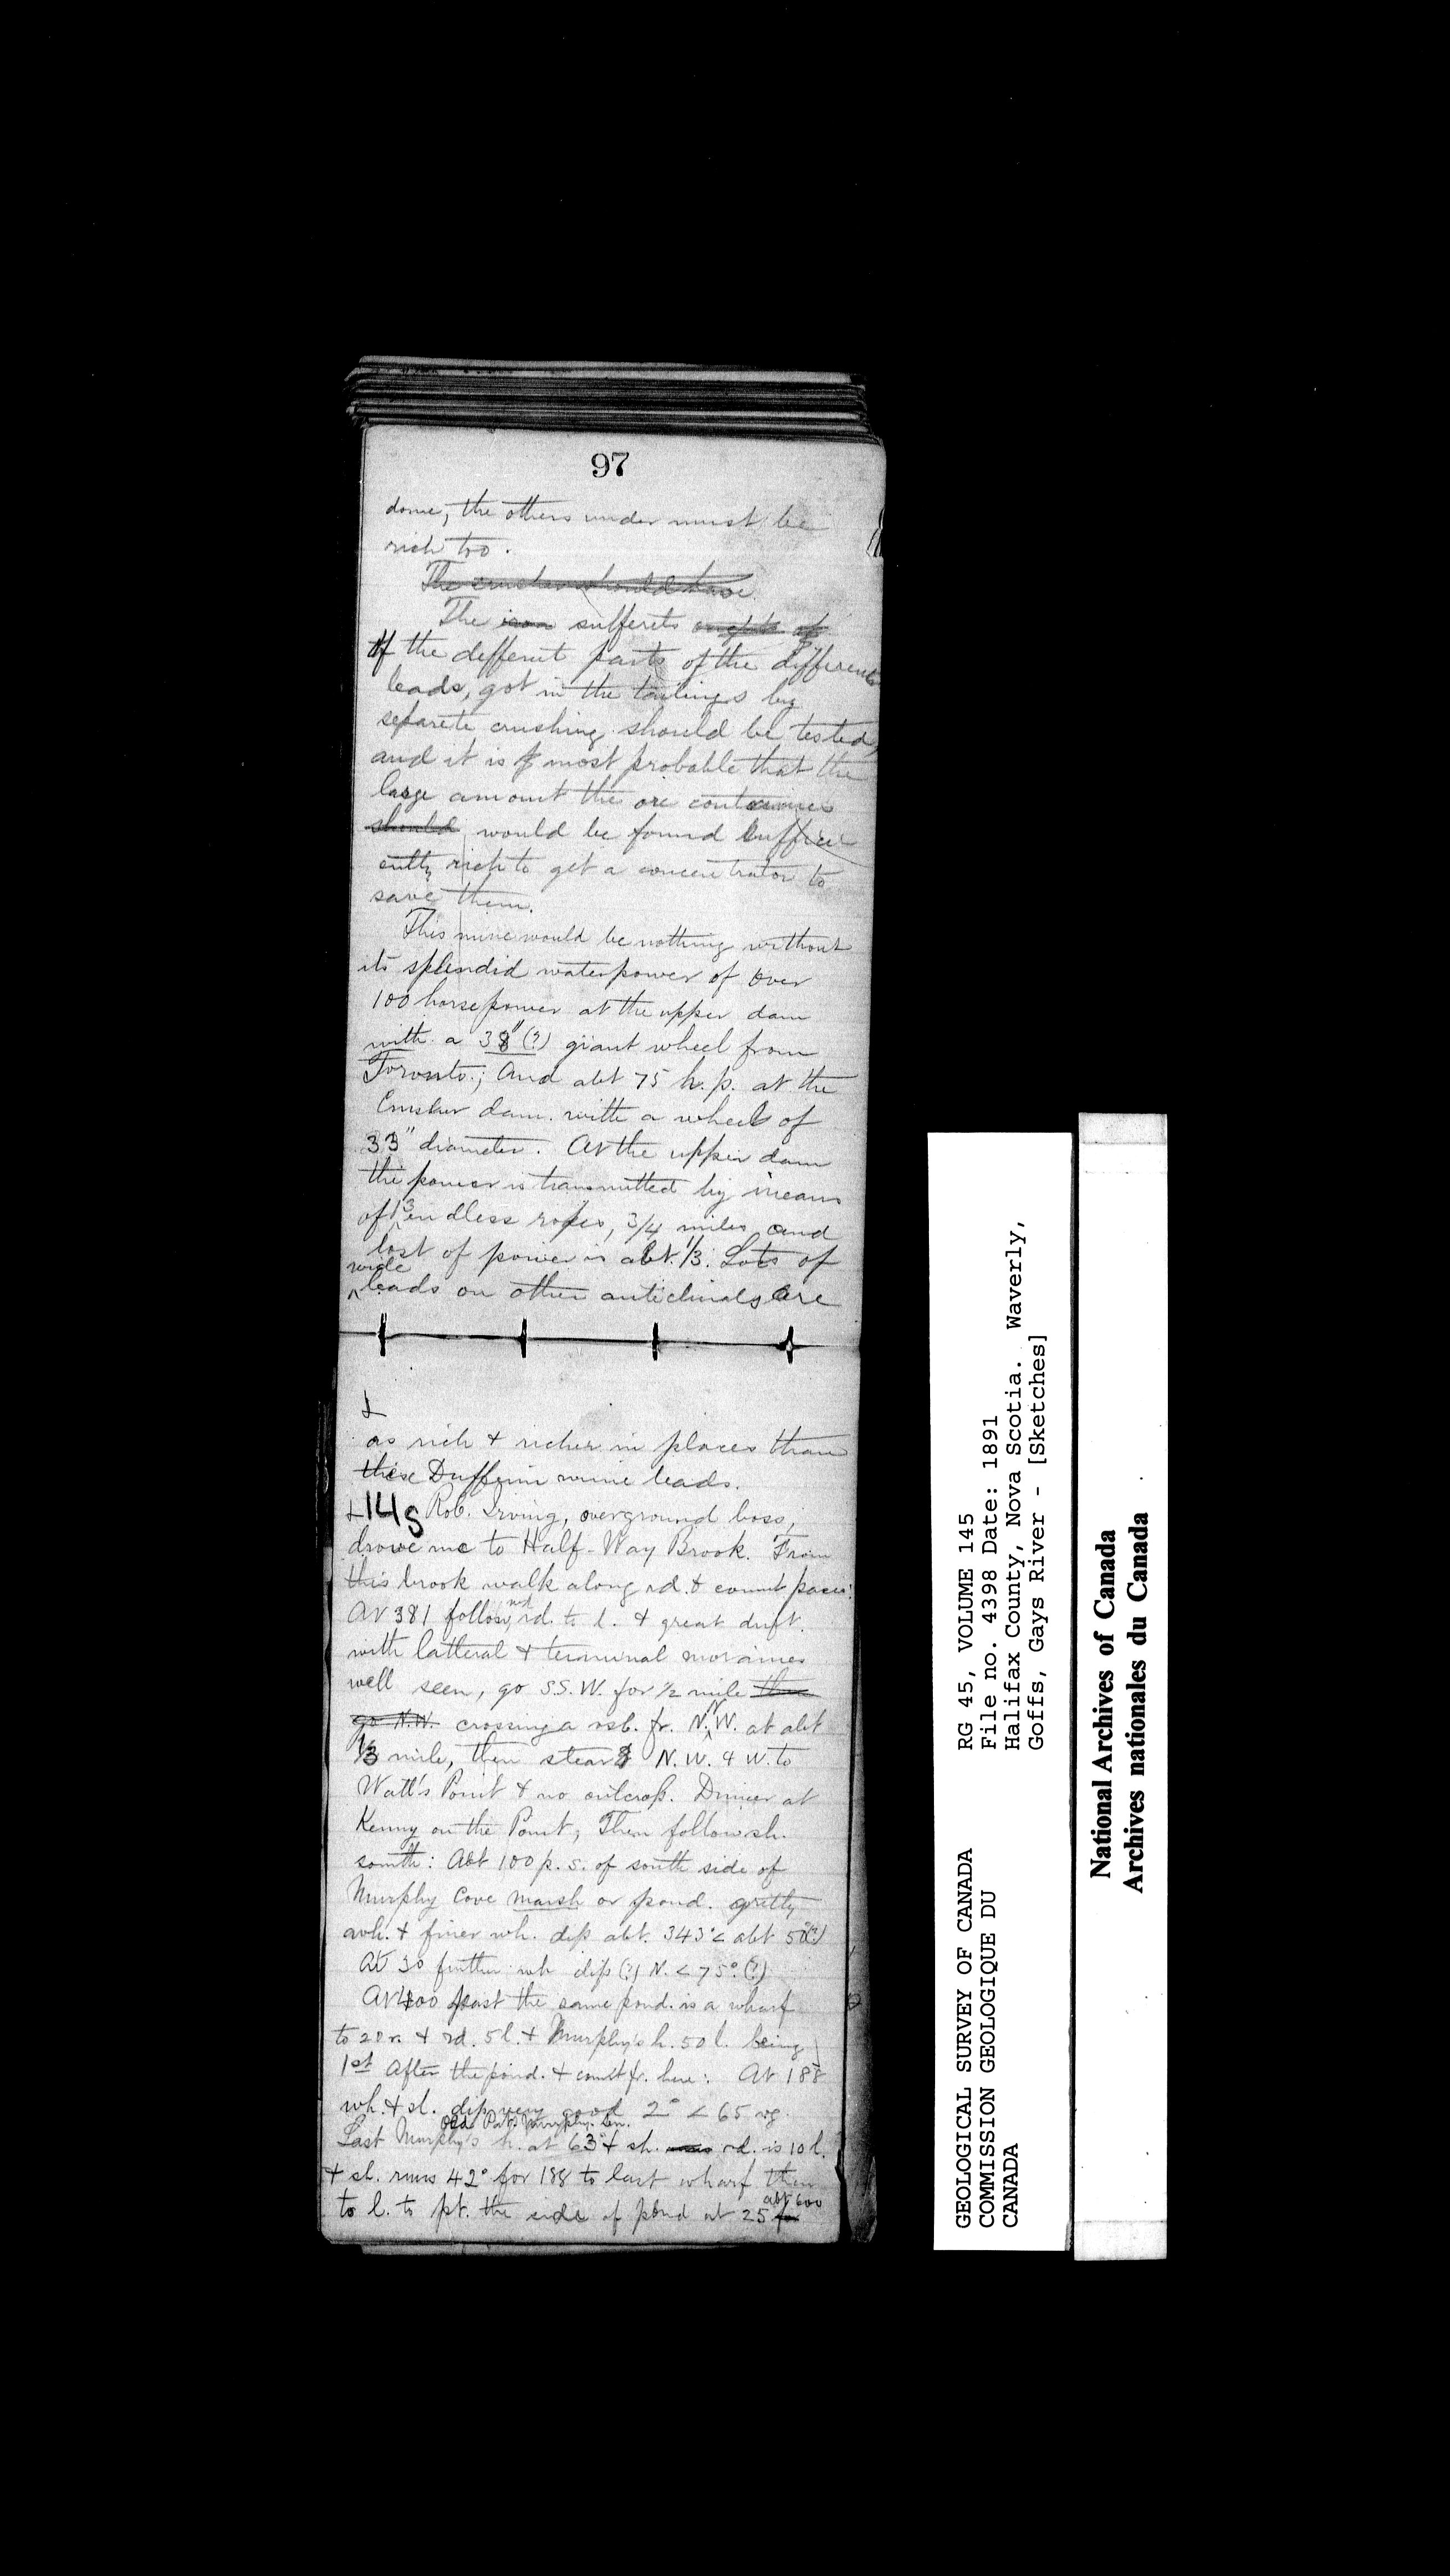 97
dome, the others under must be
rich too.
The crusher should have
The iron sufferets ought of
of the different parts of the different
leads, got in the tailings by
separete crushing should be tested,
and it is most probable that the
large amount the ore contains
should would be found suffici
ently rich to get a concentrator to
save them.
This mine would be nothing without
its splendid waterpower of over
100 horsepower at the upper dam
with a 38" (?) giant wheel from
Toronto; and abt 75 h.p. at the
Crusher dam. with a wheel of
33" diameter. At the upper dam
the power is transmitted by means
of 3 endless ropes, 3/4 miles and
lost of power is abt. 1/3. Lots of
wide
leads on other anticlinals are
as rich & richer in places than
these Dufferin mine leads.
145 Rob. Irving, overground boss,
drove me to Half-Way Brook. From
this brook walk along rd. & count paces:
At 381 follow wd. rd. to l. & great drift.
with latteral & terminal moraines
well seen, go S.S.W. for 1/2 mile then
go N.W. crossing a rsb. fr. N.N.W. at abt
1/3 mile, then stear N.W. & W. to
Watt's Point & no outcrop. Dinner at
Kenny on the Point; Then follow sh.
south: Abt 100 p. s. of south side of
Murphy Cove marsh or pond. gretty
wh. & finer wh. dip abt. 343° < abt 50°(?)
At 30 further wh dip (?) N. < 75°. (?)
At 400 past the same pond. is a wharf
to 20 r. & rd. 5 l. & Murphy's h. 50 l. being
1st after the pond. & count fr. here: At 188
wh. & sl. dip very good 2° < 65 vg
Old Pat. Murphy. Sen.
Last Murphy's h. at 63 & sh. rd. is 10 l.
& sh. runs 42° for 188 to last wharf then
to l. to pt. the side of pond at 25 abt 600
RG 45, VOLUME 145
File no. 4398 Date: 1891
Halifax County, Nova Scotia. Waverly,
Goffs, Gays River - [Sketches]
GEOLOGICAL SURVEY OF CANADA
COMMISSION GEOLOGIQUE DU
CANADA
National Archives of Canada
Archives nationales du Canada